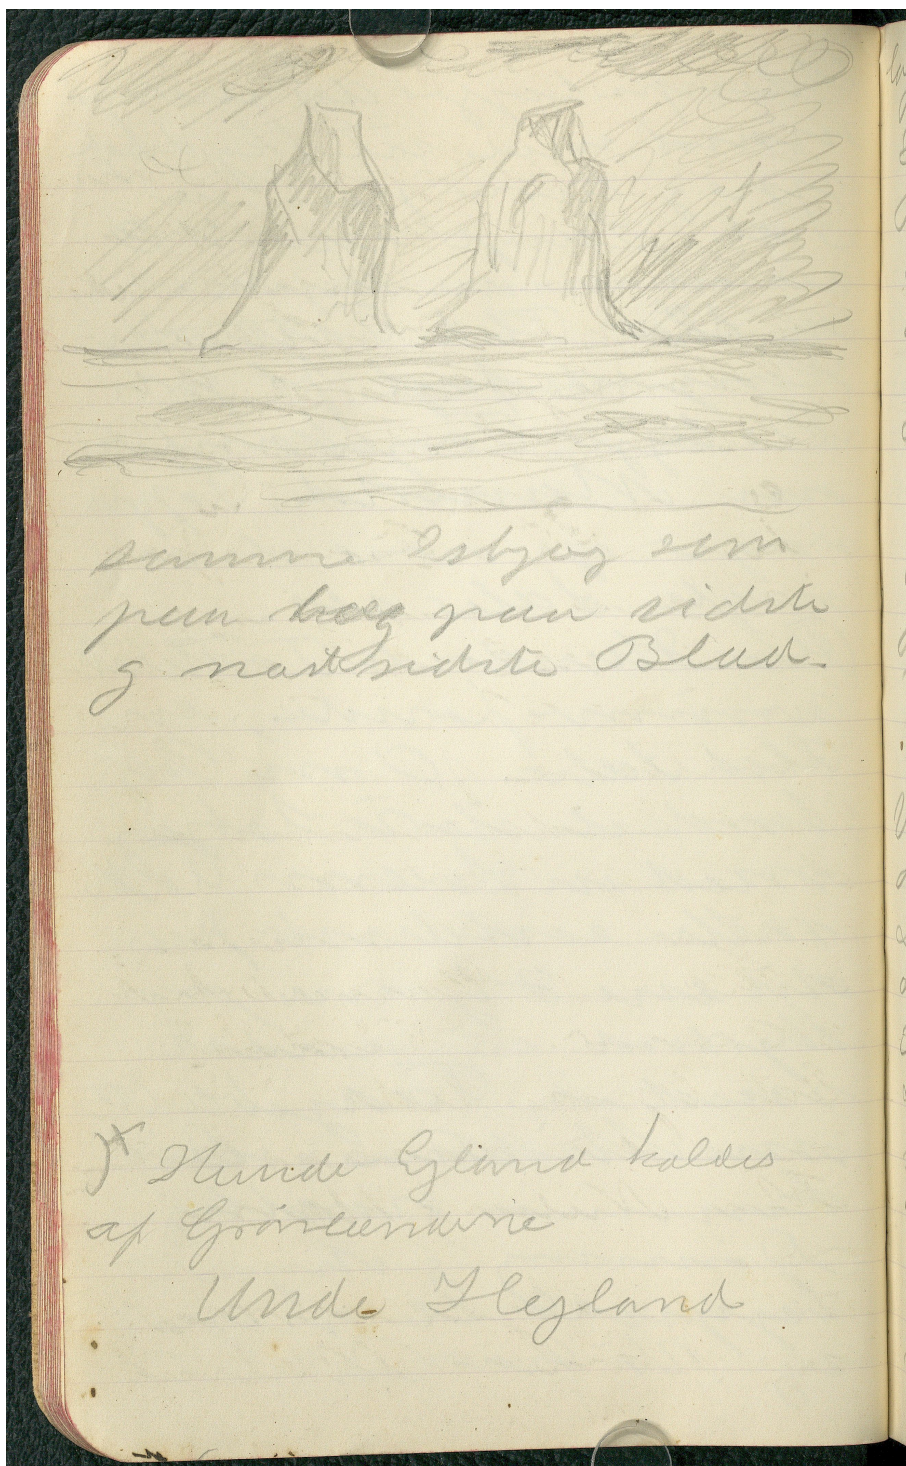 samme Isbjærg som
paa bag paa sidste
g næstsidste Blad.
)x Hunde Ejland kaldes
af Grønlænderne
Unde Hejland